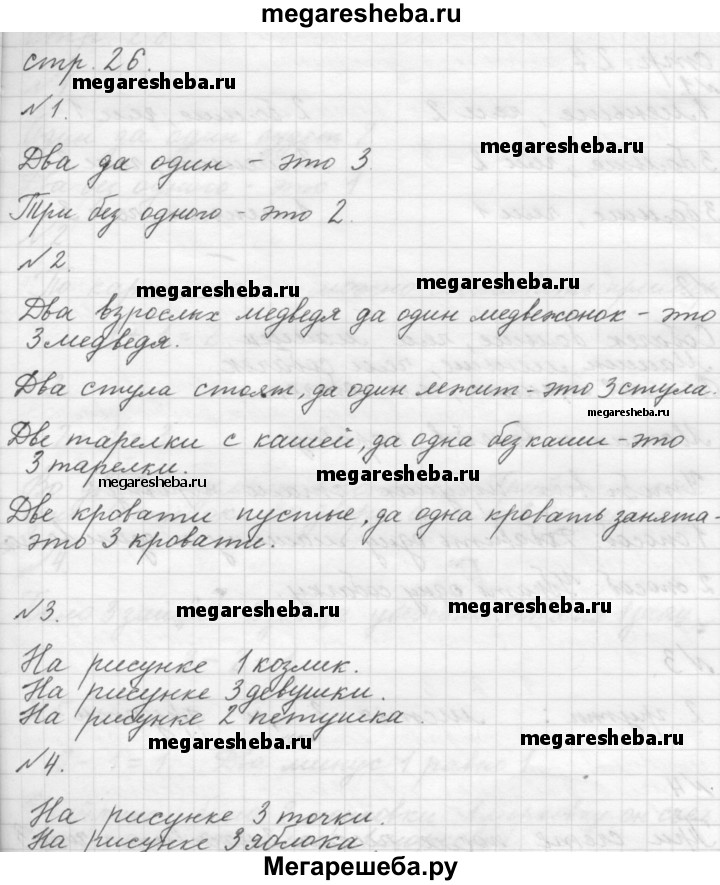 megaresheba.ru
стр. 26.
megaresheba.ru
№1.
Два да один - это 3
megaresheba.ru
Три без одного - это 2.
№2.
megaresheba.ru
megaresheba.ru
Два взрослых медведя да один медвежонок - это
3 медведя.
Два стула стоят, да один лежит - это 3 стула.
megaresheba.ru
Две тарелки с кашей, да одна без каши - это
3 тарелки.
megaresheba.ru
megaresheba.ru
Две кровати пустые, да одна кровать занята -
это 3 кровати.
№3.
megaresheba.ru
megaresheba.ru
На рисунке 1 козлик.
На рисунке 3 девушки.
На рисунке 2 петушка.
megaresheba.ru
megaresheba.ru
№4.
На рисунке 3 точки.
На рисунке 3 яблока
Мегарешеба.ру